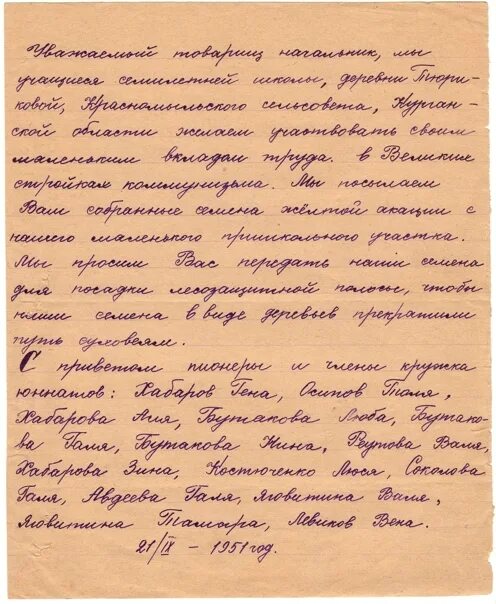 Уважаемый товарищ начальник, мы
учащиеся семилетней школы, деревни Тюри-
ковой, Красномыльского сельсовета, Курган-
ской области желаем участвовать своим
маленьким вкладом труда. в Великих
стройкам коммунизма. Мы посылаем
Вам собранные семена жёлтой акации с
нашего маленького пришкольного участка.
Мы просим Вас передать наши семена
для посадки лесозащитной полосы, чтобы
наши семена в виде деревьев прекратили
путь суховеям.
С приветом пионеры и члены кружка
юннатов: Хабаров Гена, Осипов Толя,
Хабарова Аля, Бутакова Люба, Бутако-
ва Галя, Бутакова Нина, Валя,
Хабарова Зина, Костюченко Люся, Соколова
Галя, Авдеева Галя, Яговитина Валя,
Яговитина Тамара, Левиков Вена.
21/IX – 1951 год.